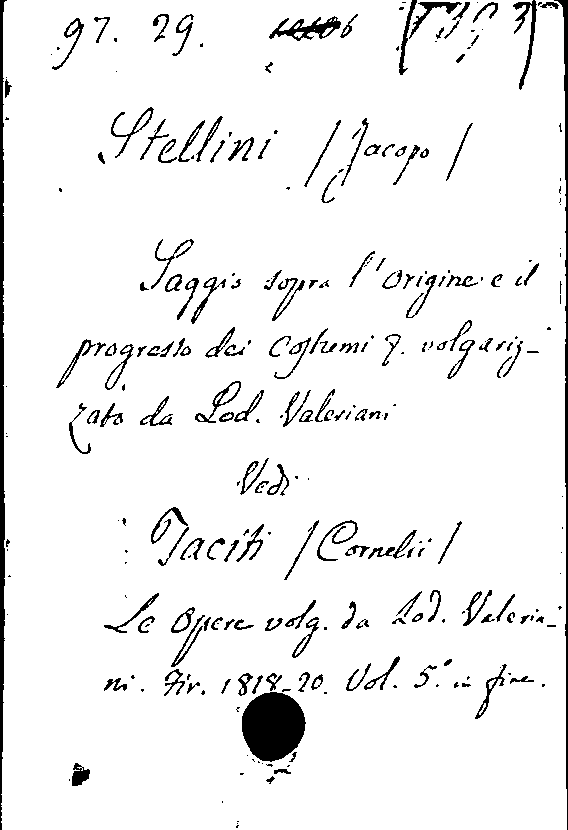 97. 29.
Stellini /Jacopo/
Saggio sopra l'origine e il
progresso dei Costumi &. volgariz-
zato da Lod. Valeriani
Vedi
Taciti /Cornelii/
Le Opere volg. da Lod. Valeria-
ni. Fir. 1818-20. Vol. 5.° in fine.